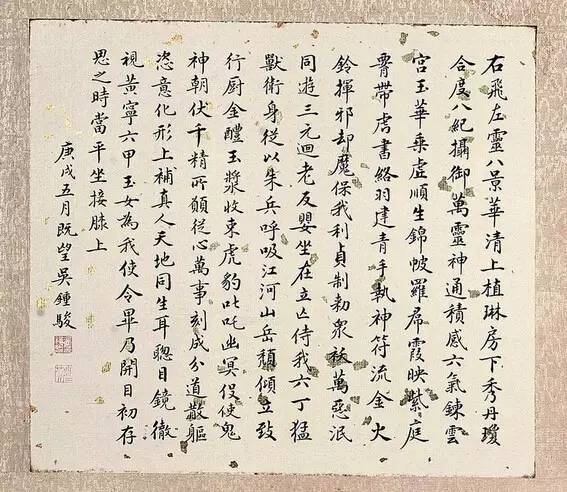 右飛左靈八景華清上植琳房下秀丹瓊
合度八紀攝御萬靈神通積感六氣鍊雲
宮玉華乘虛順生錦帔羅帬霞映紫庭
腎帶虎書絡羽建青手執神符流金火
鈴揮邪却魔保我利貞制勅眾祅萬惡泯
同遊三元迴老反嬰坐在立亾侍我六丁猛
獸衛身從以朱兵呼吸江河山岳頹傾立致
行厨金醴玉漿收束虎豹叱吒幽冥役使鬼
神朝伏千精所願從心萬事刻成分道散軀
恣意化形上補真人天地同生耳聰目鏡徹
視黃寧六甲玉女為我使令畢乃開目初存
思之時當平坐接膝上
庚戌五月既望吳鍾駿